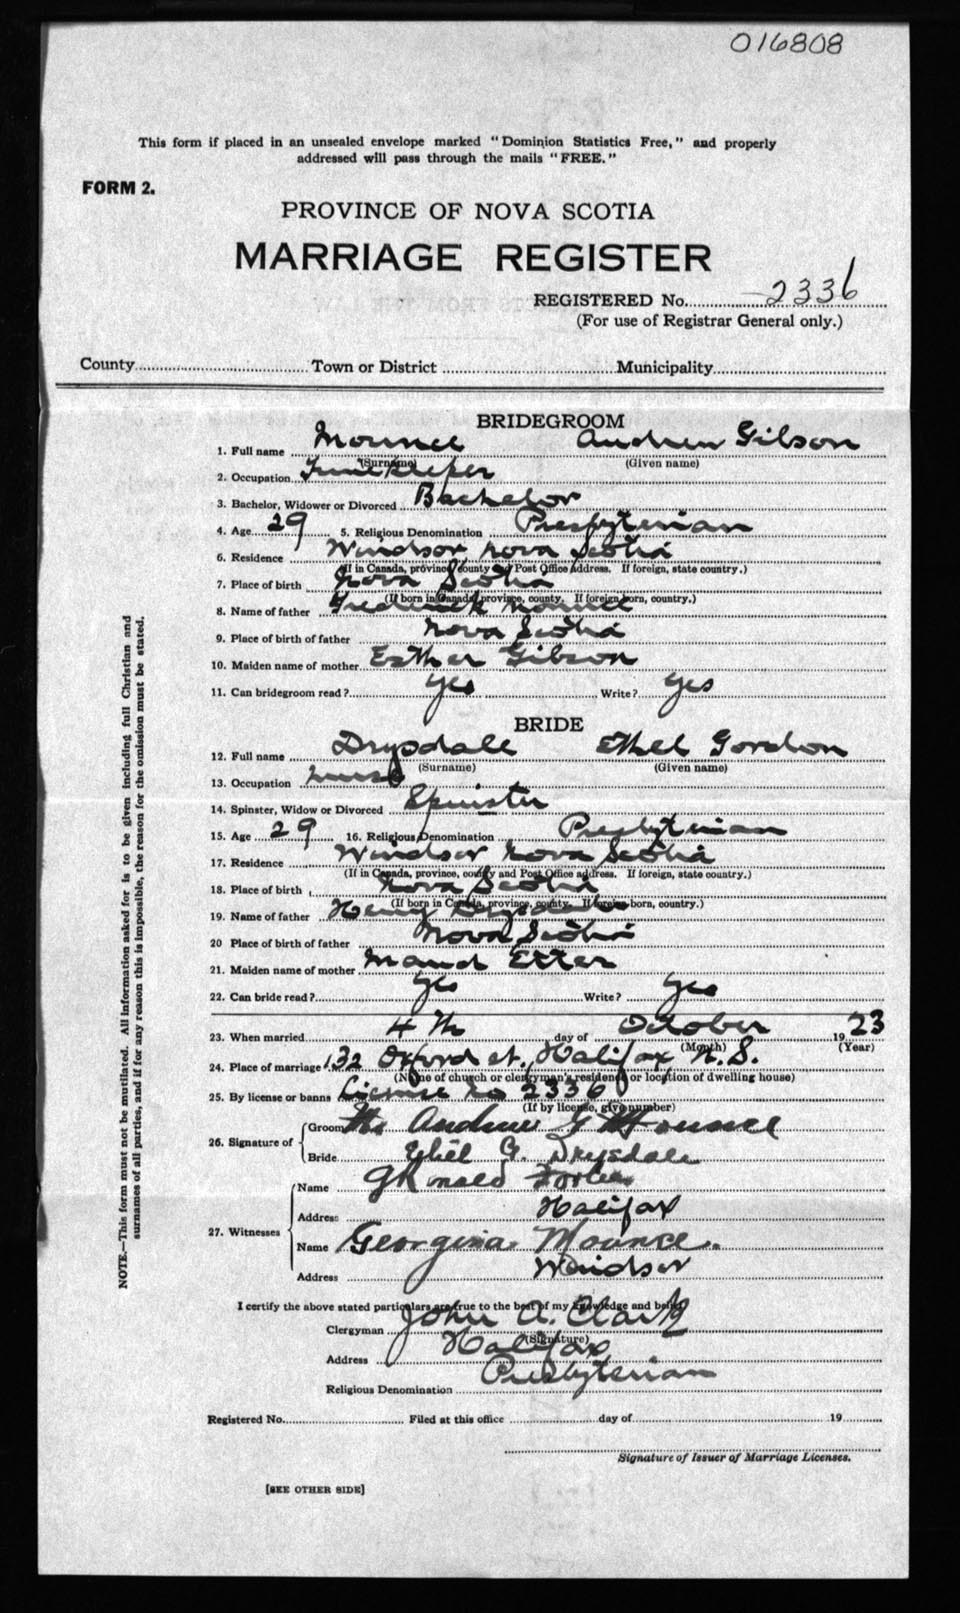 016808
This form if placed in an unsealed envelope marked "Dominion Statistics Free," and properly
addressed will pass through the mails "FREE."
FORM 2.
PROVINCE OF NOVA SCOTIA
MARRIAGE REGISTER
REGISTERED No. 2336
(For use of Registrar General only.)
County Town or District Municipality
BRIDEGROOM
1. Full name Mounce Andrew Gibson
(Surname) (Given name)
2. Occupation
3. Bachelor, Widower or Divorced Bachelor
4. Age 29 5. Religious Denomination Presbyterian
6. Residence Windsor, Nova Scotia
(If in Canada, province, county and Post Office Address. If foreign, state country.)
7. Place of birth Nova Scotia
(If born in Canada, province, county. If foreign born, country.)
8. Name of father Frederick Mounce
9. Place of birth of father Nova Scotia
10. Maiden name of mother Esther Gibson
11. Can bridegroom read? yes Write? yes
BRIDE
12. Full name Drysdale Ethel Gordon
(Surname) (Given name)
13. Occupation nurse
14. Spinster, Widow or Divorced Spinster
15. Age 29 16. Religious Denomination Presbyterian
17. Residence Windsor Nova Scotia
(If in Canada, province, county and Post Office address. If foreign, state country.)
18. Place of birth Nova Scotia
(If born in Canada, province, county. If foreign born, country.)
19. Name of father Henry Drysdale
20 Place of birth of father Nova Scotia
21. Maiden name of mother Maud Etter
22. Can bride read? yes Write? yes
23. When married 4th day of October 1923
(Month) (Year)
24. Place of marriage 132 Oxford st. Halifax, N. S.
(Name of church or clergyman's residence or location of dwelling house)
25. By license or banns License no 2336
(If by license, give number)
26. Signature of
Groom Andrew G Mounce
Bride Ethel G. Drysdale
27. Witnesses
Name
Address Halifax
Name Georgina Mounce.
Address Windsor
I certify the above stated particulars are true to the best of my knowledge and belief
Clergyman John A. Clark
(Signature)
Address Halifax
Religious Denomination Presbyterian
Registered No. Filed at this office day of 19
Signature of Issuer of Marriage Licenses.
[SEE OTHER SIDE]
NOTE.—This form must not be mutilated. All information asked for is to be given including full Christian and
surnames of all parties, and if for any reason this is impossible, the reason for the omission must be stated.